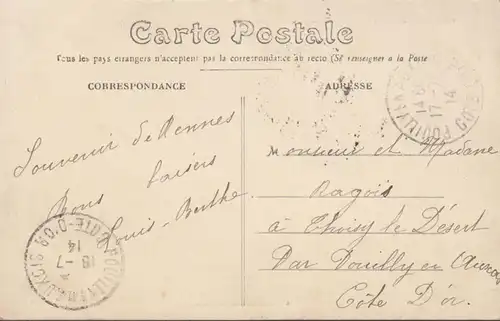 Carte Postale
Tous les pays étrangers n'acceptent pas la correspondance au recto (Se renseigner à la Poste
CORRESPONDANCE
ADRESSE
Souvenir de Rennes
Bons baisers
Louis-Berthe
Monsieur et Madame
Ragois
à Thoisy le Désert
Par Pouilly en Auxois
Côte D'or.
18-7
14
COTE-D'OR
17-7
14